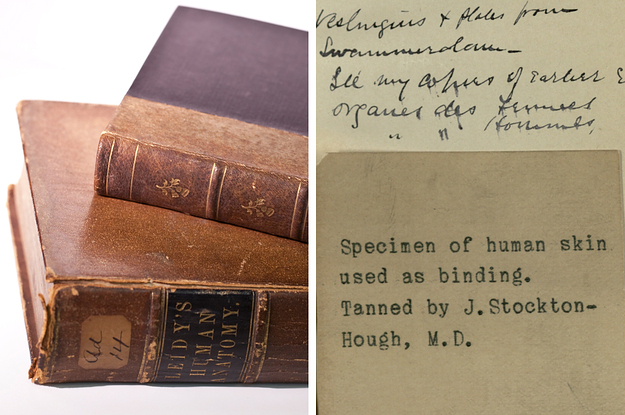 LEIDY'S
HUMAN
ANATOMY.
14
& Plates from
Swammerdam
See my copies of Earlier
organes des femmes
" " hommes,
Specimen of human skin
used as binding.
Tanned by J.Stockton-
Hough, M.D.